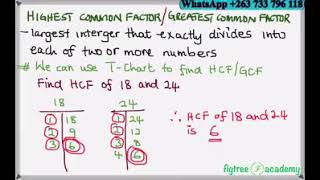 WhatsApp +263 733 796 118
HIGHEST COMMON FACTOR/GREATEST COMMON FACTOR
-largest interger that exactly divides into
each of two or more numbers
# We can use T-Chart to find HCF/GCF
Find HCF of 18 and 24
18
1 18
2 9
3 6
24
1 24
2 12
3 8
4 6
∴ HCF of 18 and 24
is 6
figtree academy